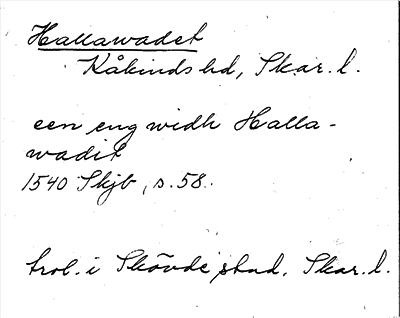 Hallawadet
Kåkinds hd, Skar. l.
een eng widh Halla-
wadit
1540 Skjb, s. 58.
trol. i Skövde stad. Skar. l.